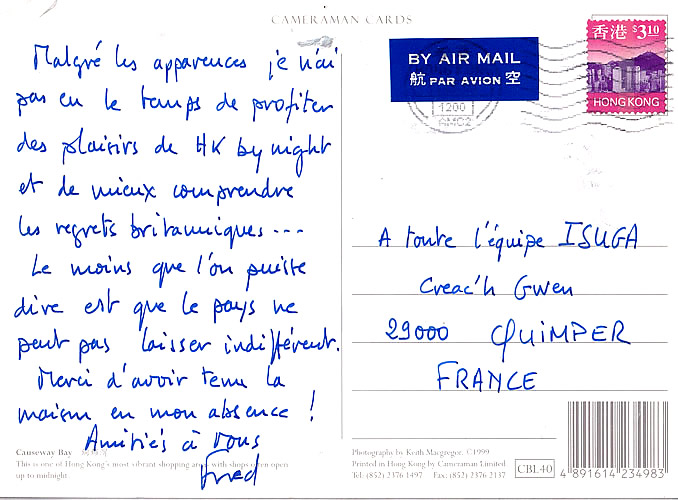 CAMERAMAN CARDS
Malgré les apparences je n'ai
pas eu le temps de profiter
des plaisirs de HK by night
et de mieux comprendre
les regrets britanniques ---
Le moins que l'on puisse
dire est que le pays ne
peut pas laisser indifférent.
Merci d'avoir tenu la
maison en mon absence !
Amitiés à vous
Fred
Causeway Bay
This is one of Hong Kong's most vibrant shopping areas with shops often open
up to midnight
BY AIR MAIL
航 PAR AVION 空
1200
香港 $3.10
HONG KONG
A toute l'équipe ISUGA
Creac'h Gwen
29000 QUIMPER
FRANCE
Photography by Keith Macgregor. ©1999
Printed in Hong Kong by Cameraman Limited
Tel: (852) 2376 1497 Fax: (852) 2376 2137
CBL40
4 891614 234983